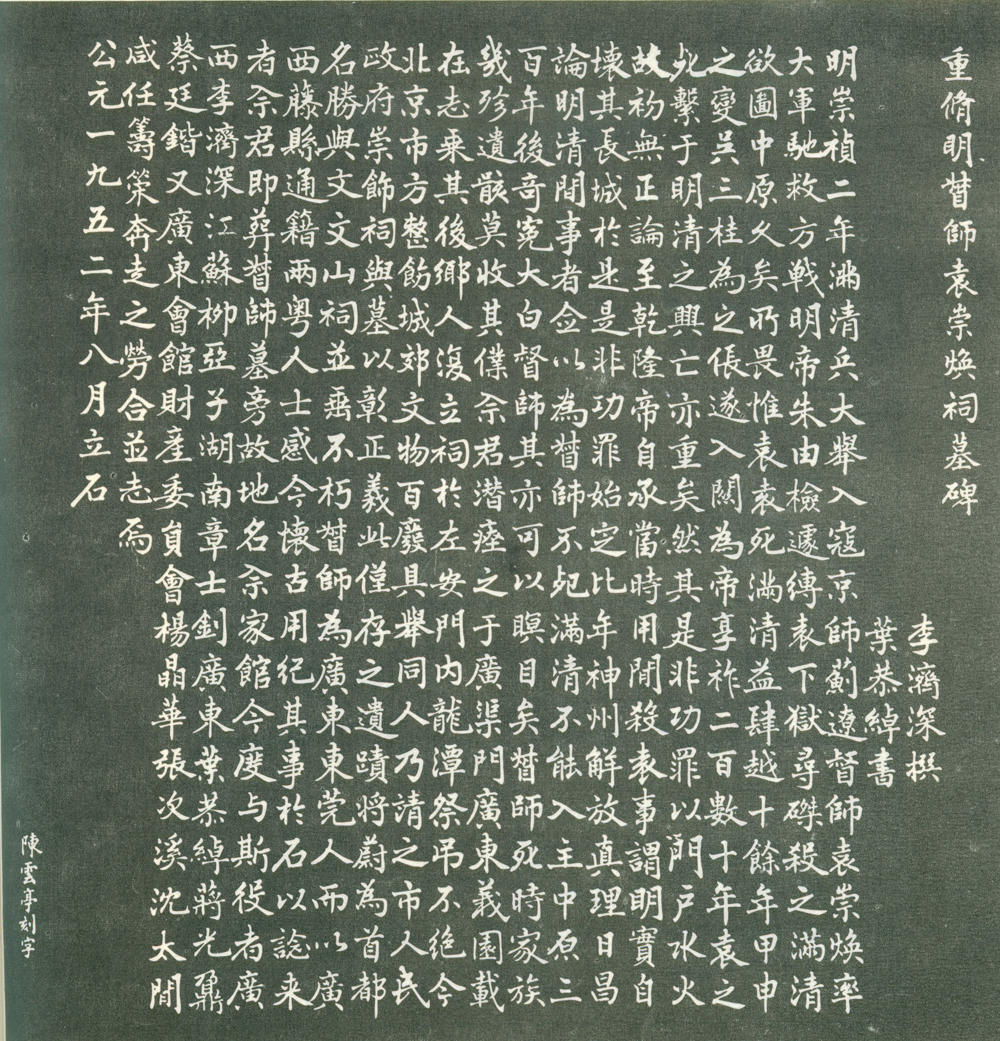 重脩明督師袁崇焕祠墓碑
李濟深撰
葉恭綽書
明崇禎二年滿清兵大舉入寇京師薊遼督師袁崇煥率
大軍馳救方戰明帝朱由檢遽縳袁下獄尋磔殺之滿清
欲圖中原久矣所畏惟袁袁死滿清益肆越十餘年甲申
之變吴三桂為之倀遂入關為帝享祚二百數十年袁之
死繫于明清之興亡亦重矣然其是非功罪以門户水火
故初無正論至乾隆帝自承當時用間殺袁事謂明實自
壞其長城於是是非功罪始定比年神州解放真理日昌
論明清間事者僉以為督師不死滿清不能入主中原三
百年後奇寃大白督師其亦可以瞑目矣督師死時家族
幾殄遺骸莫收其僕佘君潛瘞之于廣渠門廣東義園載
在志乘其後鄉人復立祠於左安門内龍潭祭吊不絶今
北京市方整飭城郊文物百廢具舉同人乃請之市人民
政府崇飾祠與墓以彰正義此僅存之遺蹟將蔚為首都
名勝與文文山祠並垂不朽督師為廣東東莞人而以廣
西藤縣通籍兩粤人士感今懷古用紀其事於石以諗来
者佘君即葬督師墓旁故地名佘家館今度与斯役者廣
西李濟深江蘇柳亞子湖南章士釗廣東葉恭綽蔣光鼐
蔡廷鍇又廣東會館財產委員會楊晶華張次溪沈太閒
咸任籌策奔走之勞合並志焉
公元一九五二年八月立石
陳雲亭刻字